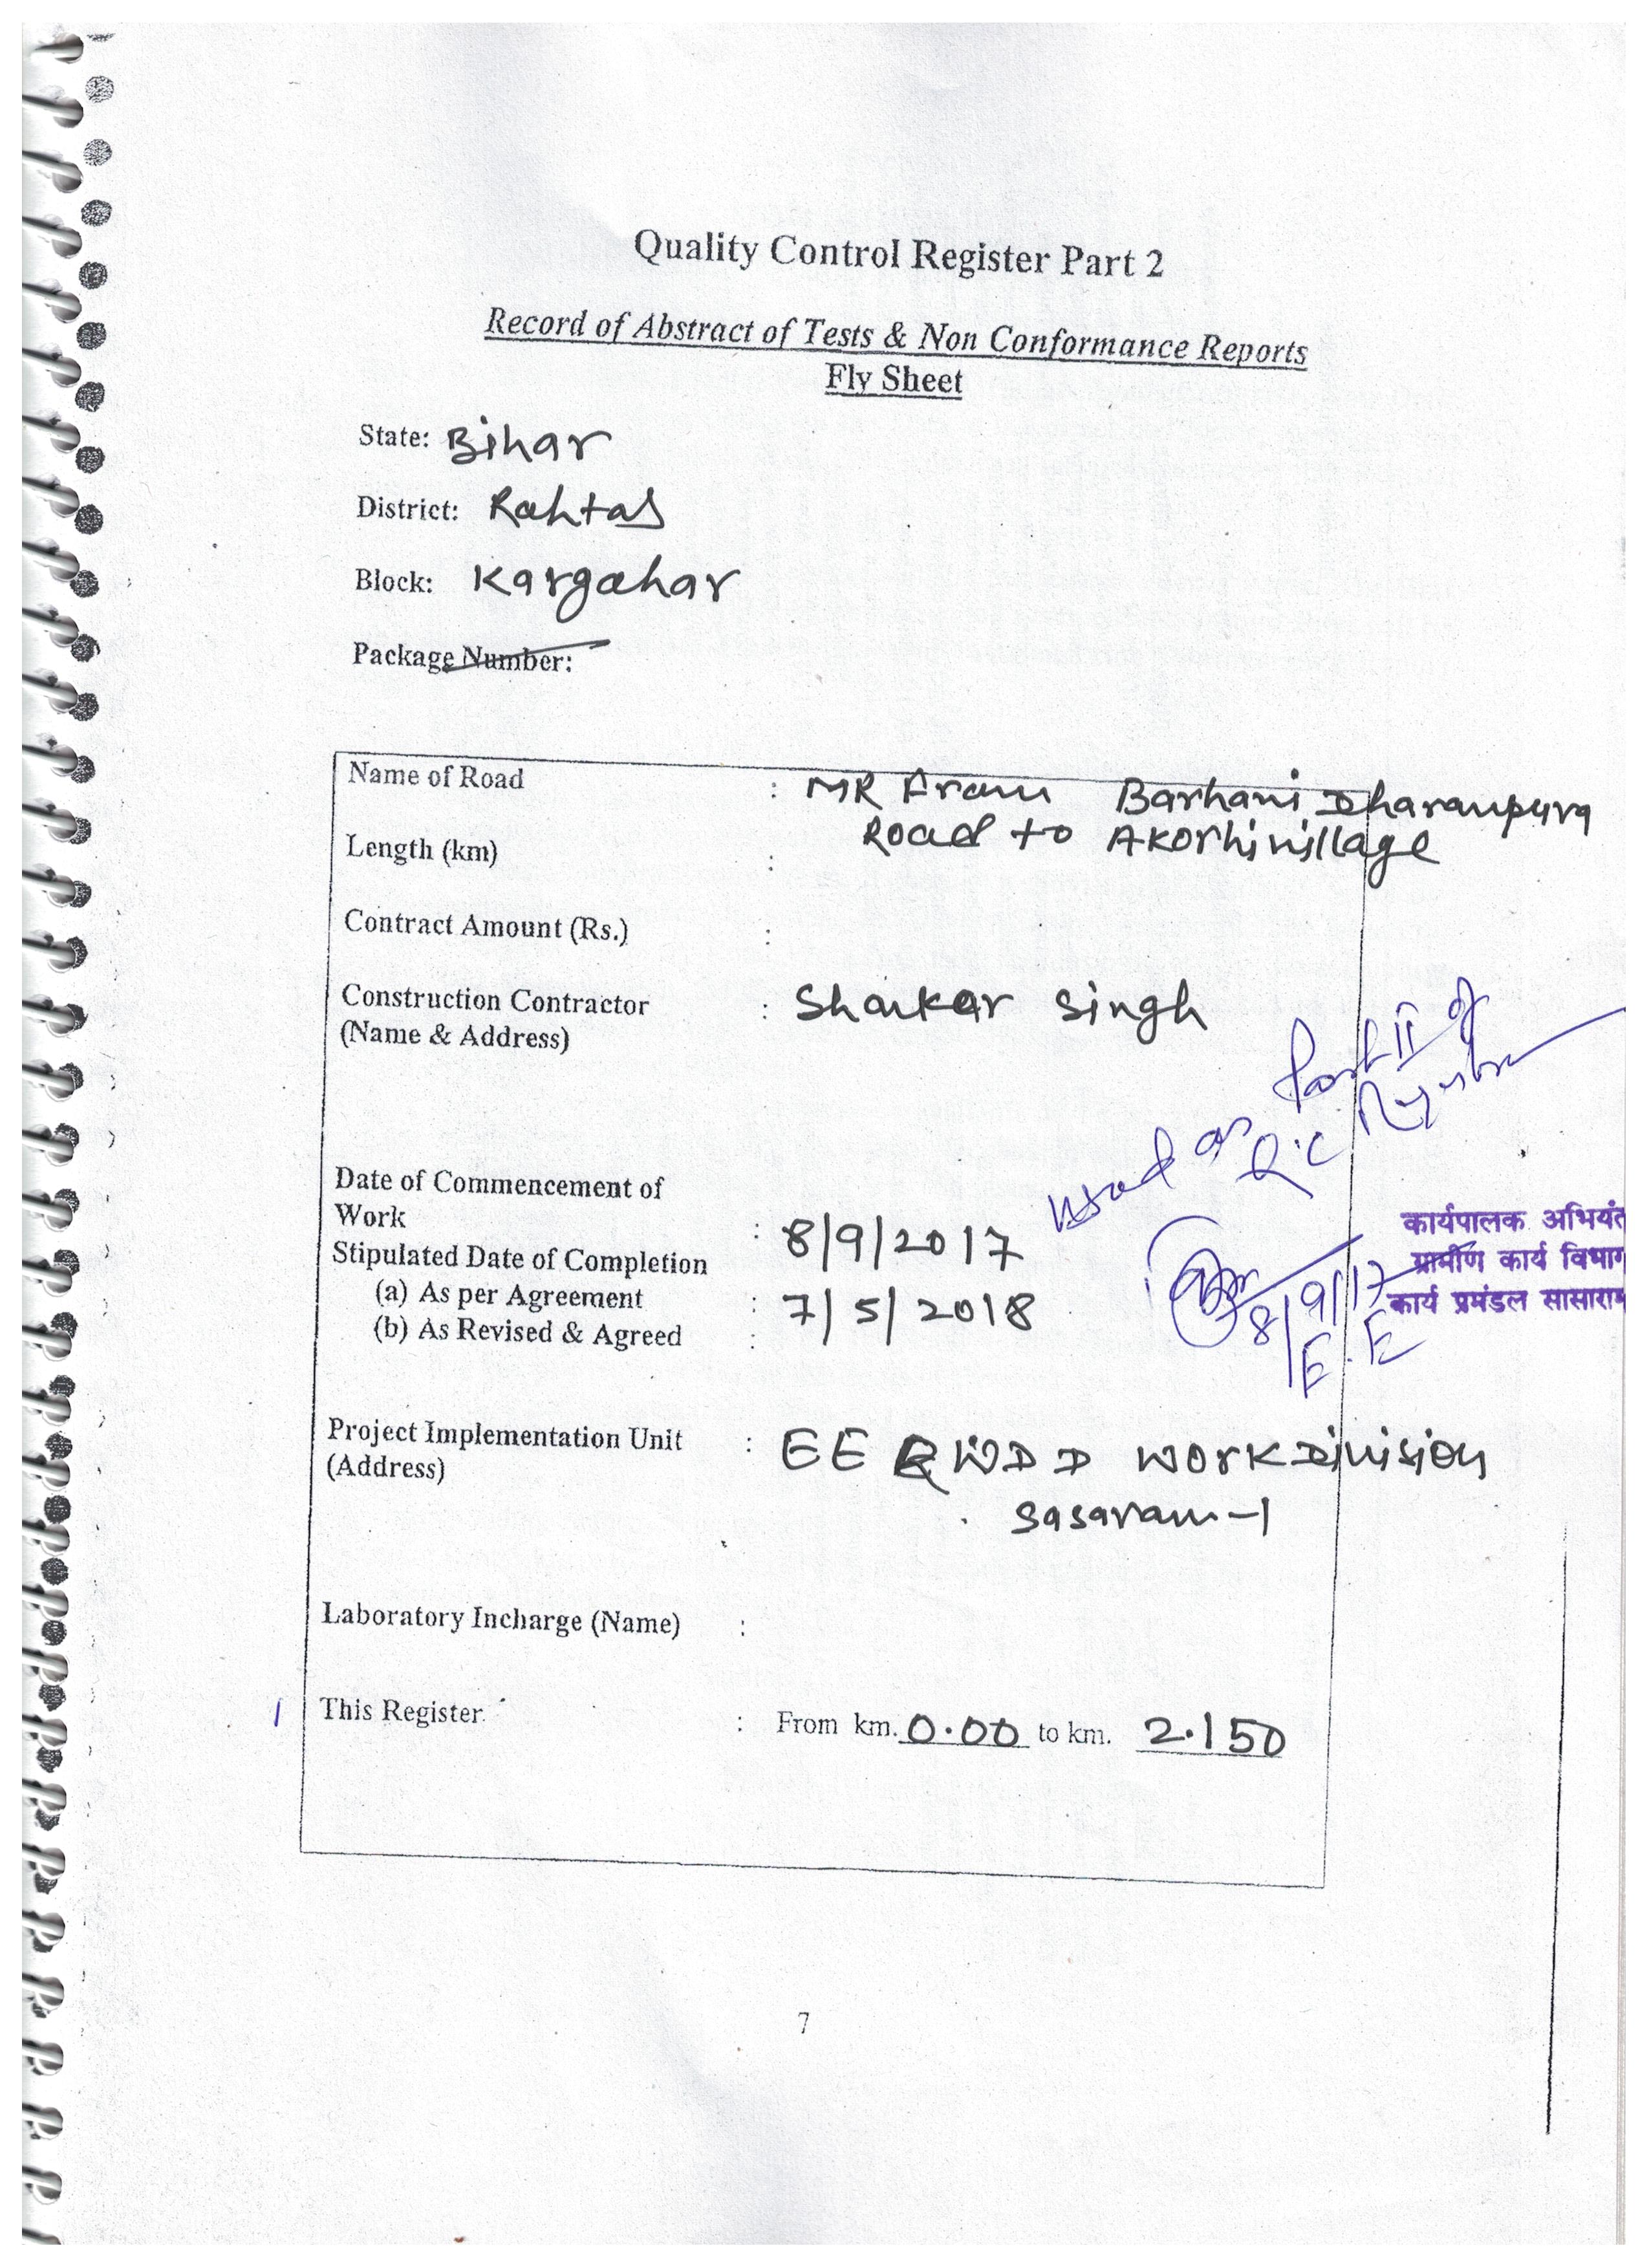 Quality Control Register Part 2
Record of Abstract of Tests & Non Conformance Reports
Fly Sheet
State: Bihar
District: Rohtas
Block: Kargahar
Package Number:
Name of Road : MR From Barhani Dharampura
Road to Akorhi village
Length (km) :
Contract Amount (Rs.) :
Construction Contractor : Shankar Singh
(Name & Address)
used as Part II of
Q.C Register
Date of Commencement of
Work : 8/9/2017
Stipulated Date of Completion
(a) As per Agreement : 7/5/2018
(b) As Revised & Agreed :
8/9/17
E.E
कार्यपालक अभियंत
ग्रामीण कार्य विभाग
कार्य प्रमंडल सासाराम
Project Implementation Unit : EE RWD D Work Division
(Address)
Sasaram-1
Laboratory Incharge (Name) :
This Register : From km. 0.00 to km. 2.150
7